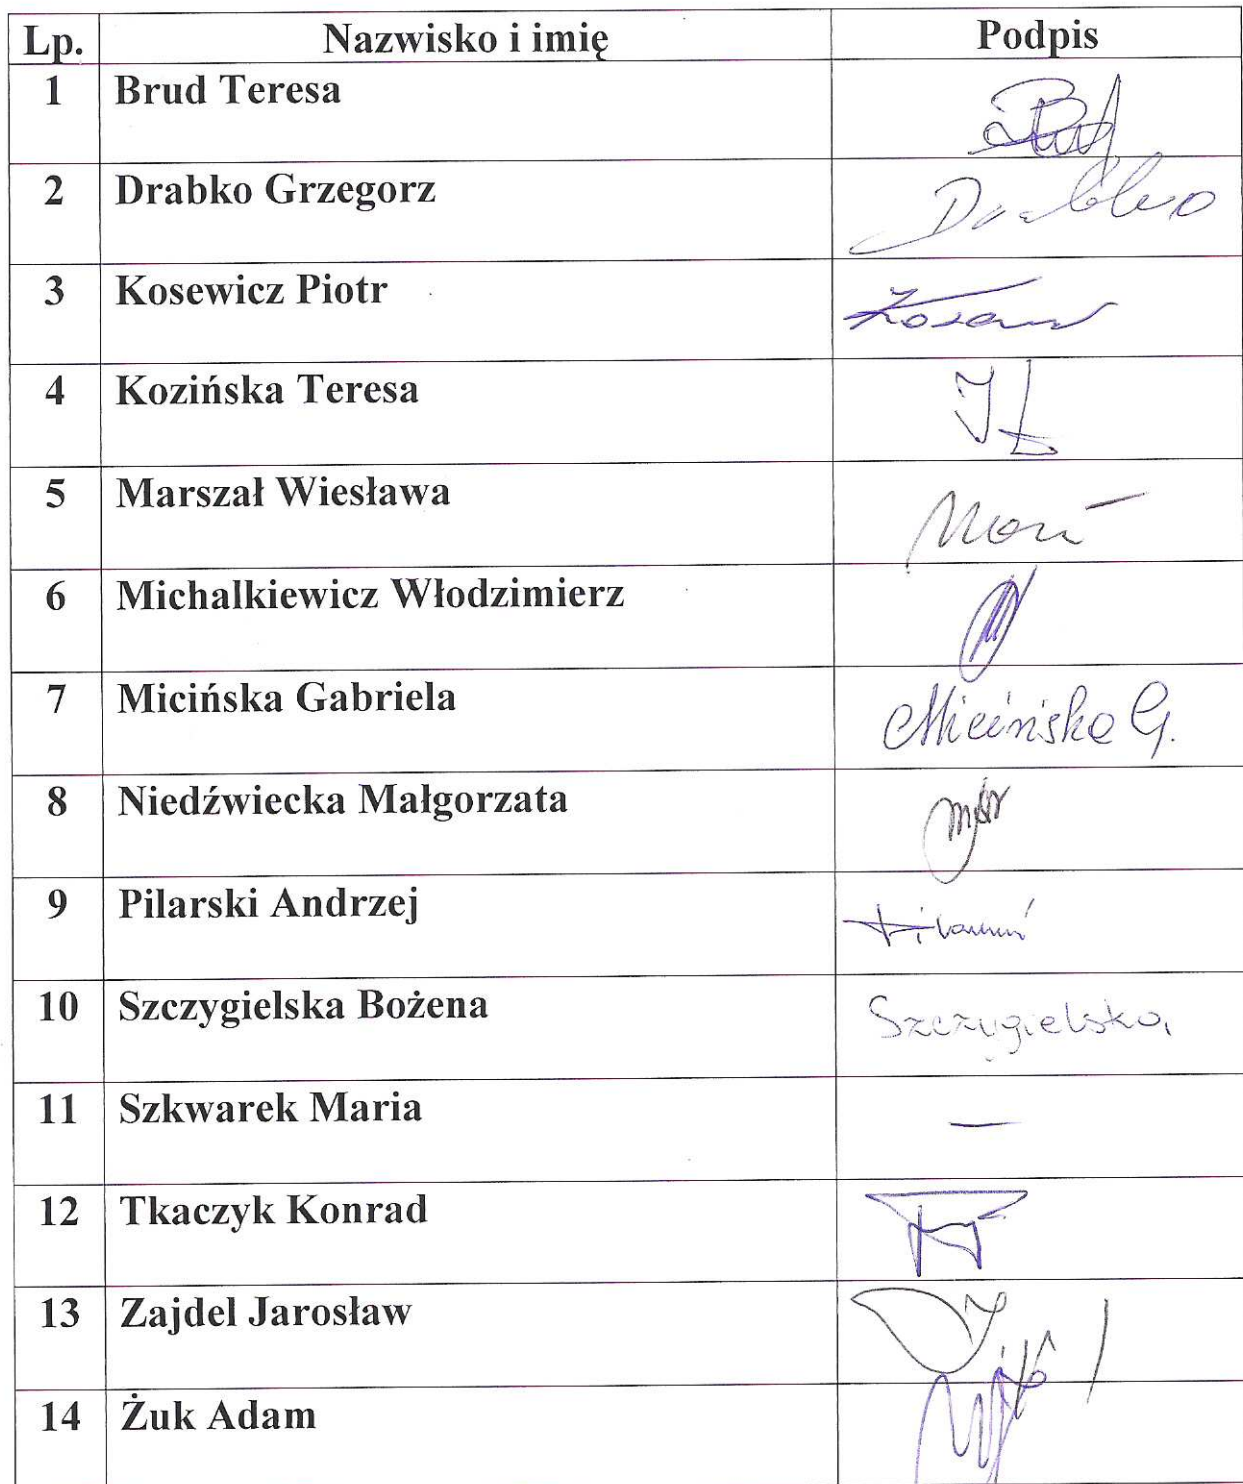 Lp. Nazwisko i imię Podpis
1 Brud Teresa
2 Drabko Grzegorz Drabko
3 Kosewicz Piotr
4 Kozińska Teresa
5 Marszał Wiesława
6 Michalkiewicz Włodzimierz
7 Micińska Gabriela Micińska G.
8 Niedźwiecka Małgorzata
9 Pilarski Andrzej
10 Szczygielska Bożena Szczygielska
11 Szkwarek Maria —
12 Tkaczyk Konrad
13 Zajdel Jarosław
14 Żuk Adam